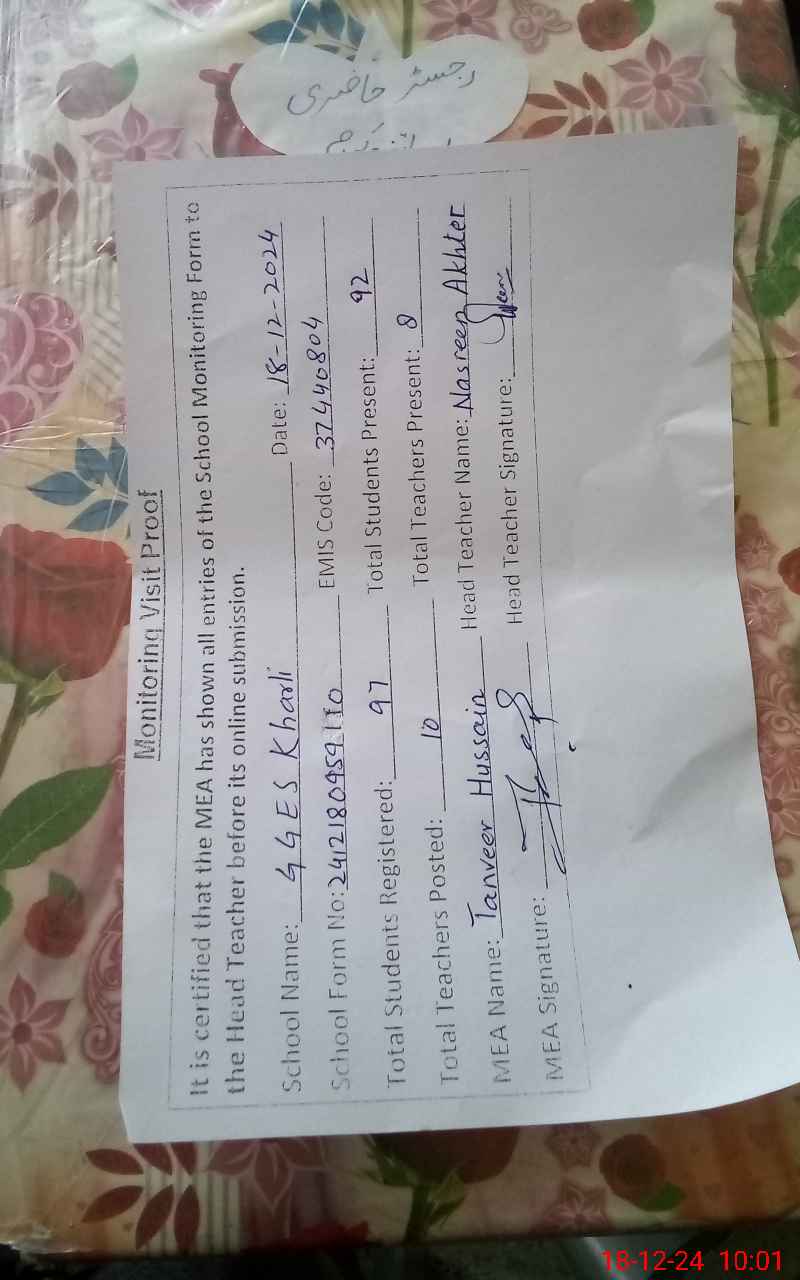 رجسٹر حاضری
Monitoring Visit Proof
It is certified that the MEA has shown all entries of the School Monitoring Form to
the Head Teacher before its online submission.
School Name: GGES Kharli Date: 18-12-2024
School Form No: EMIS Code: 37440804
Total Students Registered: 97 Total Students Present: 92
Total Teachers Posted: 10 Total Teachers Present: 8
MEA Name: Tanveer Hussain Head Teacher Name: Nasreen Akhter
MEA Signature: Head Teacher Signature:
18-12-24 10:01